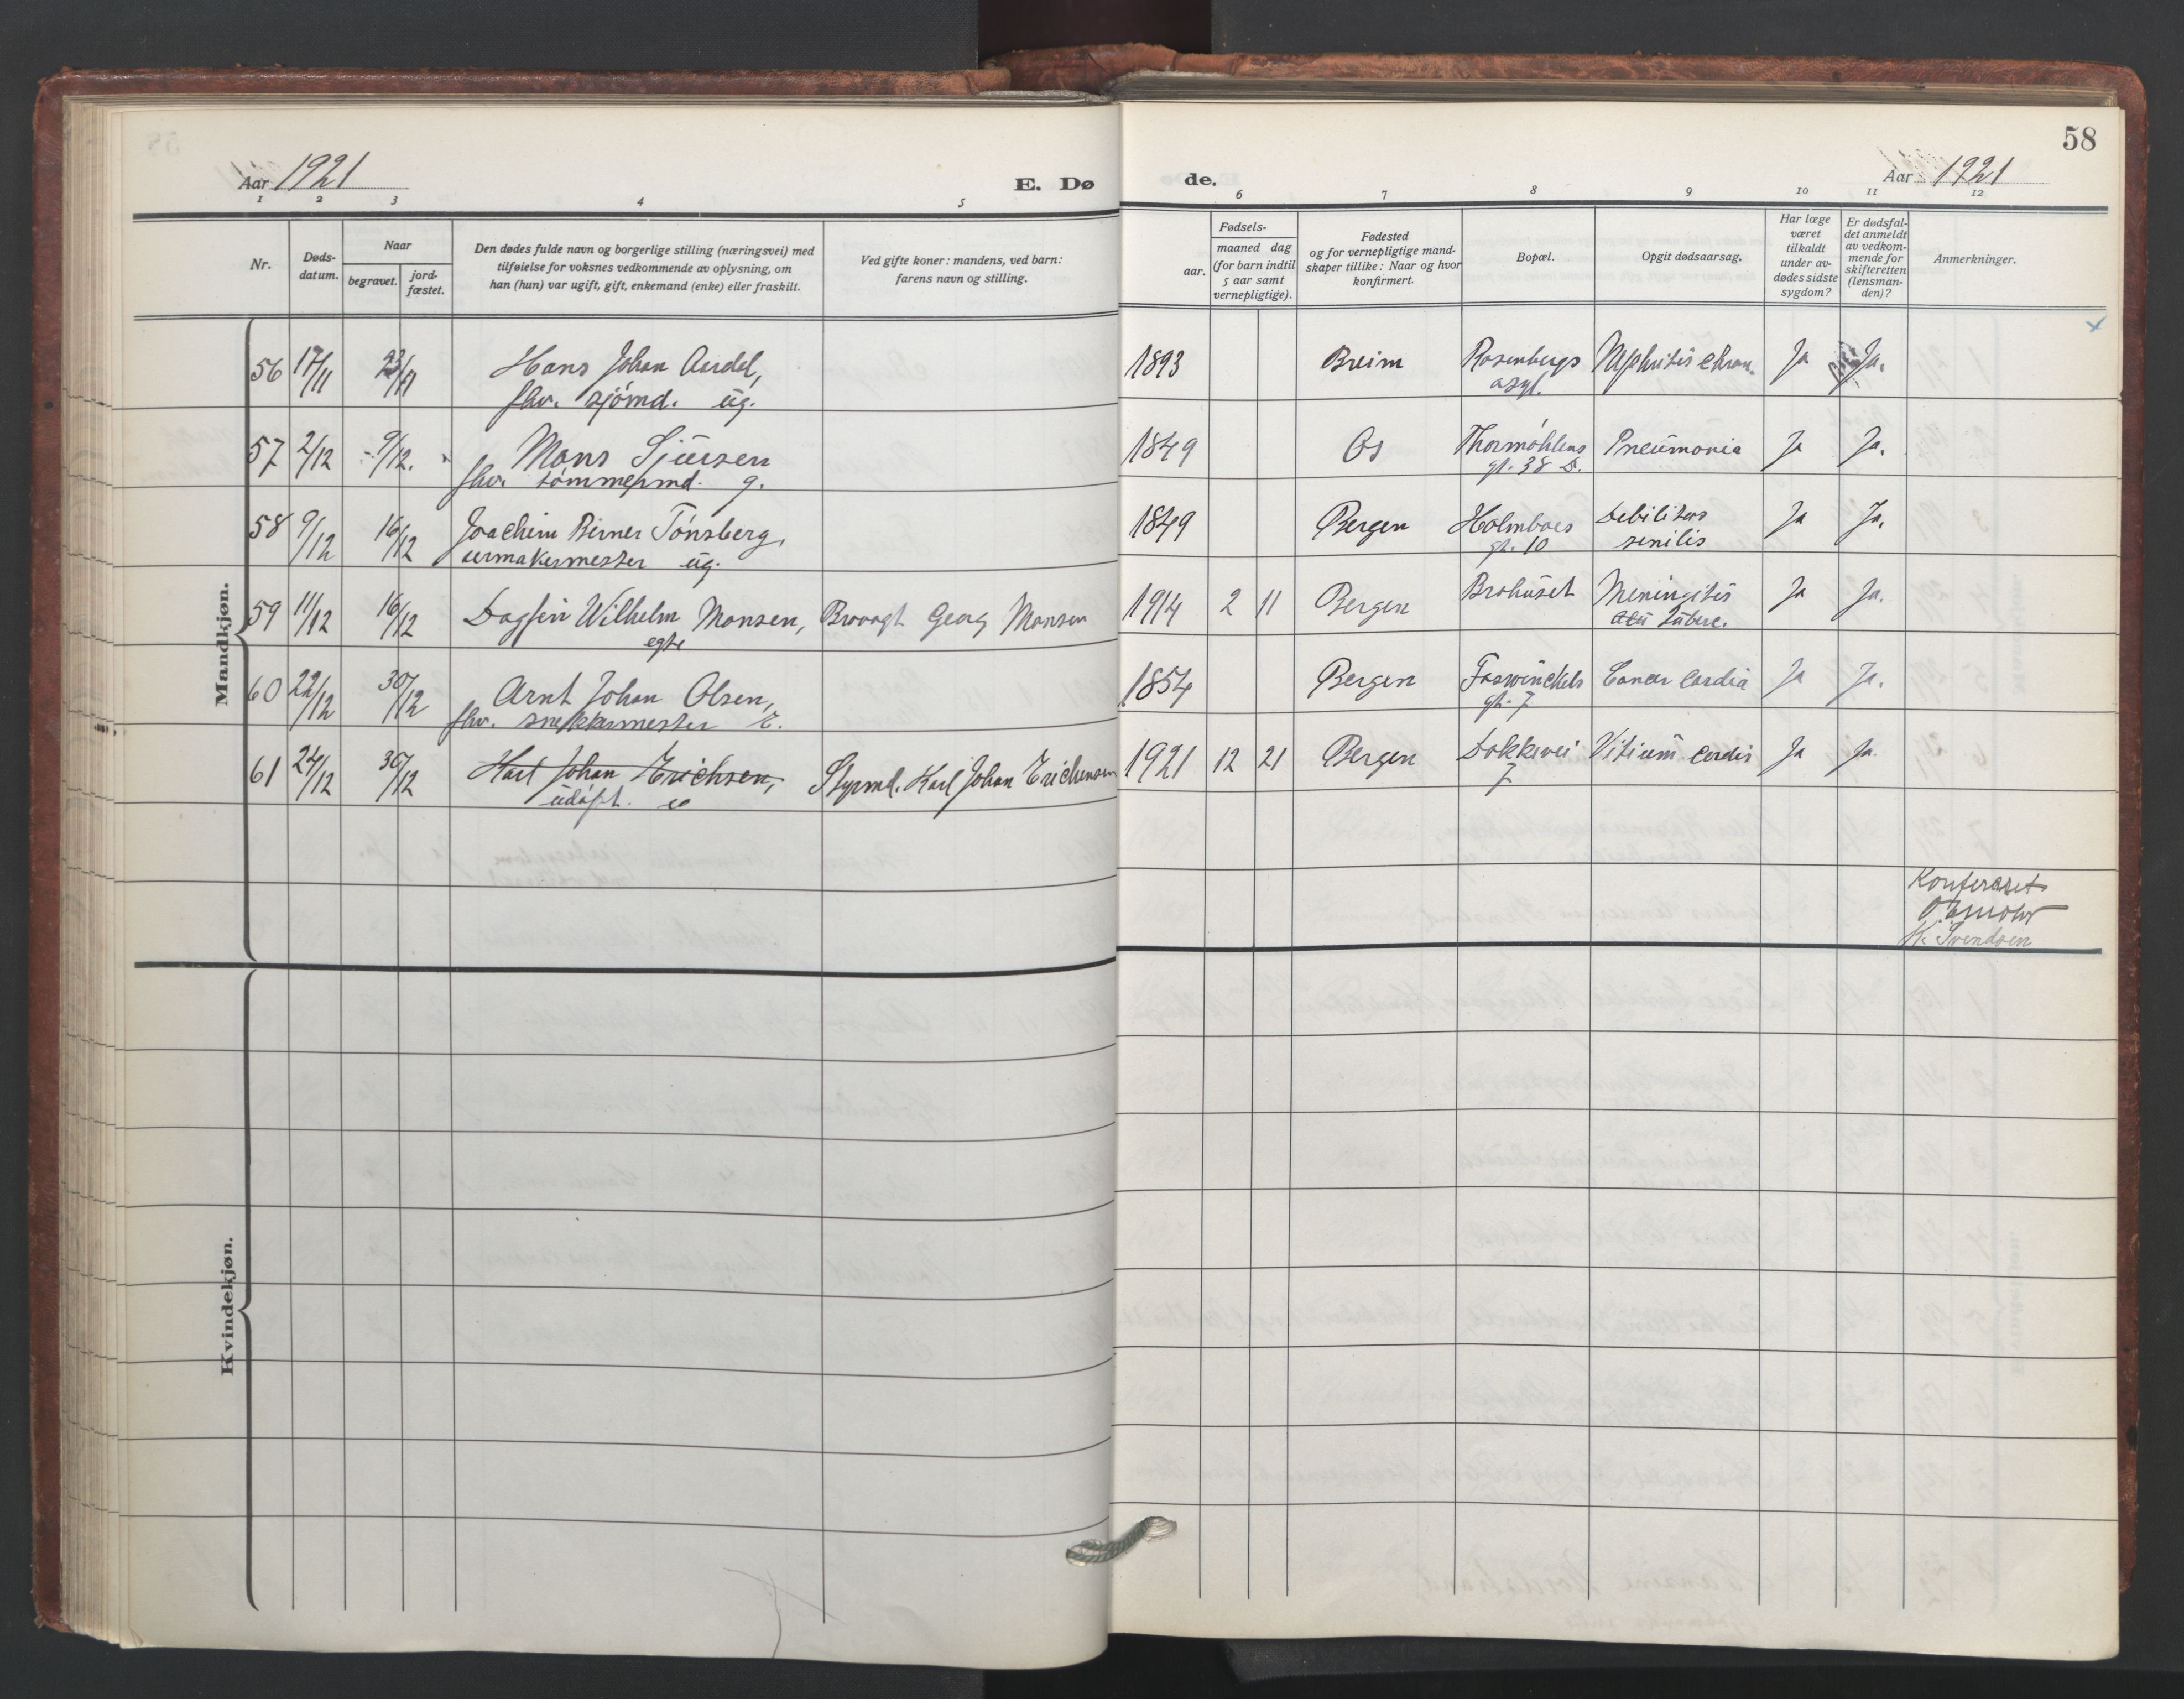 58
Aar 1921
E. Dø
de.
Aar 1921
1 2 3 4 5 6 7 8 9 10 11 12
Nr.
Døds-
datum.
Naar
begravet.
jord-
fæstet.
Den dødes fulde navn og borgerlige stilling (næringsvei) med
tilføielse for voksnes vedkommende av oplysning, om
han (hun) var ugift, gift, enkemand (enke) eller fraskilt.
Ved gifte koner: mandens, ved barn:
farens navn og stilling.
Fødsels-
aar.
maaned dag
(for barn indtil
5 aar samt
vernepligtige).
Fødested
og for vernepligtige mand-
skaper tillike: Naar og hvor
konfirmert.
Bopæl.
Opgit dødsaarsag.
Har læge
været
tilkaldt
under av-
dødes sidste
sygdom?
Er dødsfal-
det anmeldt
av vedkom-
mende for
skifteretten
(lensman-
den)?
Anmerkninger.
Mandkjøn.
56 17/11 23/11 Hans Johan Aardal, 1893 Breim Rosenbergs Nephritis chron. Ja Ja.
fhv. sjømd. ug. asyl.
57 2/12 9/12. Mons Sjursen 1849 Os Thormøhlens Pneumonia Ja Ja.
fhv. tømmermd. g. gt. 38 D.
58 9/12 16/12 Joachim Birner Tønsberg, 1849 Bergen Holmboes Debilitas Ja Ja.
urmakermester ug. gt. 10 senilis
59 11/12 16/12 Dagfin Wilhelm Monsen, Brovagt Georg Monsen 1914 2 11 Bergen Brohuset Meningitis Ja Ja.
egte tuberc.
60 22/12 30/12 Arnt Johan Olsen, 1854 Bergen Foswinckels Cancer Cardia Ja Ja.
fhv. snekkermester E. gt. 7
61 24/12 30/12 Karl Johan Erichsen, Styrmd. Karl Johan Erichsen 1921 12 21 Bergen Dokkevei Vitium Cordis Ja Ja.
udøpt. e 7
Konfereret
K. Svendsen
Kvindekjøn.